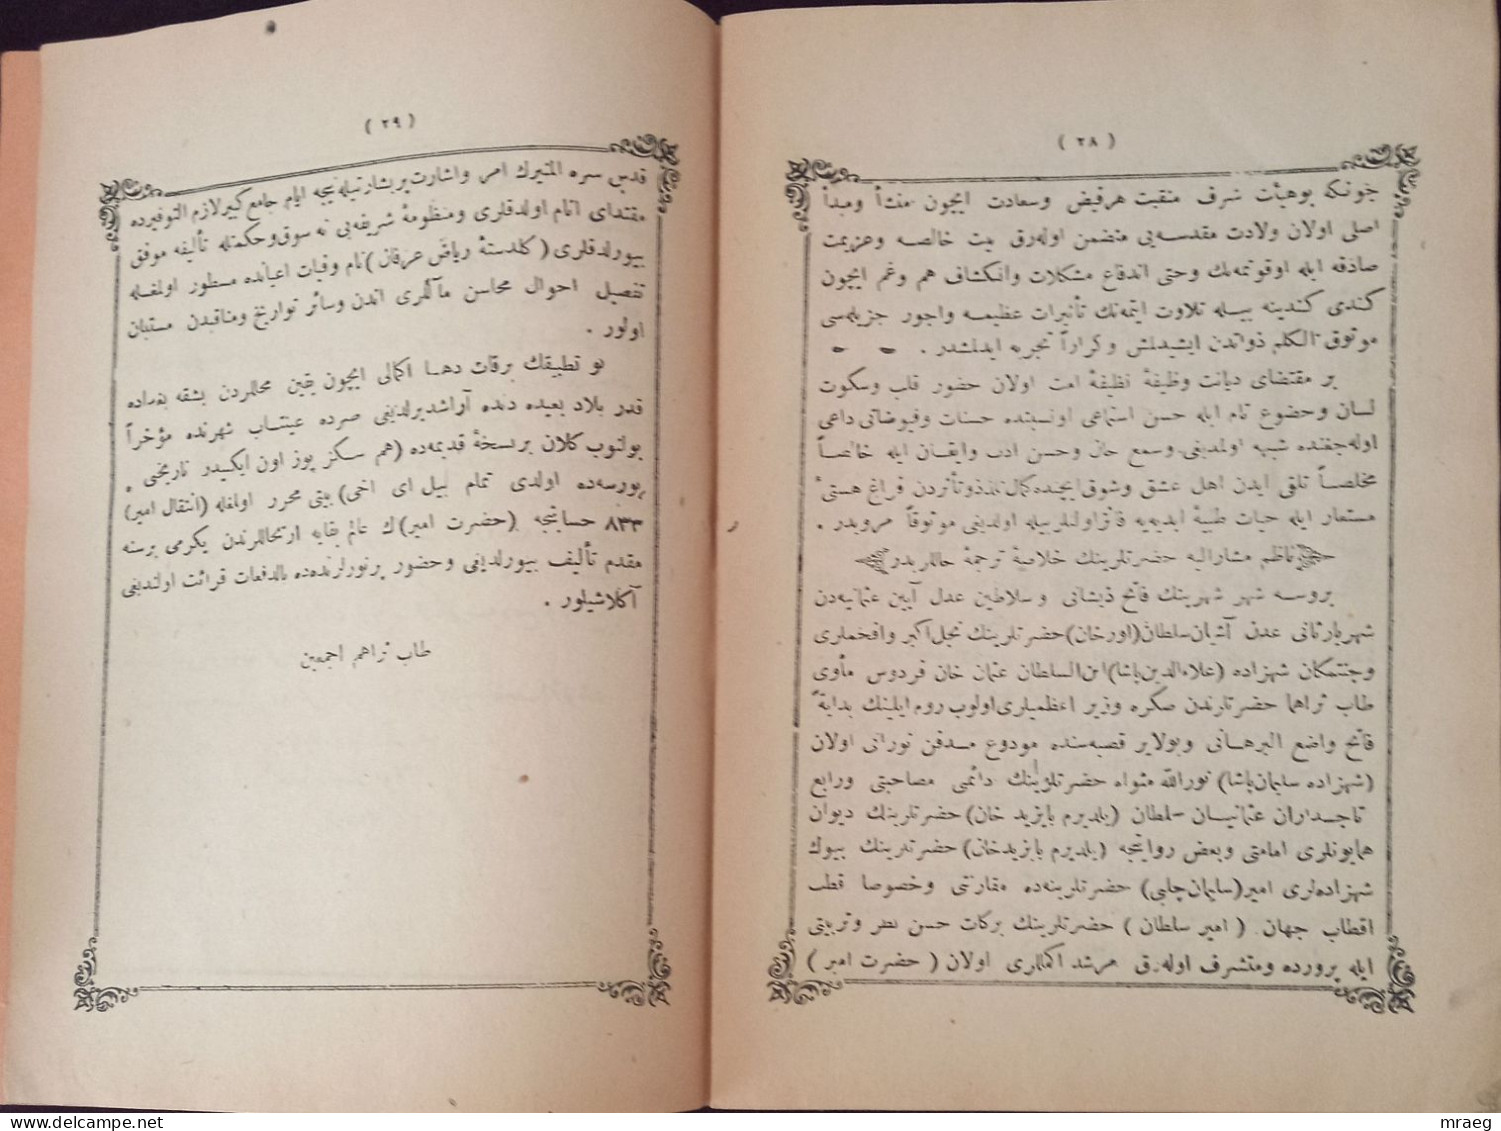 ( ٢٨ )
چونكه بوهيئت شرف منقبت هرفيض وسعادت ايچون منشأ ومبدأ
اصلى اولان ولادت مقدسه‌يى متضمن اوله‌رق نيت خالصه وعزيمت
صادقه ايله اوقوتمه‌نك وحتى اندفاع مشكلات وانكشاف هم وغم ايچون
كندى كندينه بيله تلاوت ايتمه‌نك تأثيرات عظيمه واجور جزيله‌سى
موثوق الكلم ذواتدن ايشيدلمش وكراراً تجربه ايدلمشدر .
بر مقتضاى ديانت وظيفهٔ نظيفهٔ امت اولان حضور قلب وسكوت
لسان وخضوع تام ايله حسن استماعى اونسبتده حسنات وفيوضاتى داعى
اوله‌جغنده شبهه اولمديغى وسمع جان وحسن ادب وايقان ايله خالصاً
مخلصاً تلقى ايدن اهل عشق وشوق ايچنده كمال تلذذ وتأثردن فراغ هستىٔ
مستعار ايله حيات طيبهٔ ابديه‌يه فائز اولنلر بيله اولديغى موثوقاً مرويدر .
ناظم مشاراليه حضرتلرينك خلاصهٔ ترجمهٔ حاللريدر
بروسه شهر شهيرينك فاتح ذيشانى وسلاطين عدل آيين عثمانيه‌دن
شهريارثانى عدن آشيان سلطان (اورخان) حضرتلرينك نجل اكبر وافخملرى
وجنتمكان شهزاده (علاءالدين پاشا) ابن السلطان عثمان خان فردوس مأوى
طاب ثراهما حضرتلرندن صكره وزير اعظملرى اولوب روم ايلينك بدايةً
فاتح واضع البرهانى وبولاير قصبه‌سنده مودوع مدفن نورانى اولان
(شهزاده سليمان پاشا) نورالله مثواه حضرتلرينك دائمى مصاحبتى ورابع
تاجداران عثمانيان سلطان (يلديرم بايزيد خان) حضرتلرينك ديوان
همايونلرى امامتى وبعض روايتجه (يلديرم بايزيدخان) حضرتلرينك بيوك
شهزاده‌لرى امير (سليمان چلبى) حضرتلرينه‌ده مقارنتى وخصوصا قطب
اقطاب جهان ( امير سلطان ) حضرتلرينك بركات حسن نظر وتربيتى
ايله پرورده ومتشرف اوله‌رق مرشد اكملرى اولان ( حضرت امير )
( ٢٩ )
قدس سره المتيرك امر واشارت پربشارتيله نيجه ايام جامع كبير لازم التوقيرده
مقتداى انام اولدقلرى ومنظومهٔ شريفه‌يى نه سوق وحكمتله تأليفه موفق
بيورلدقلرى (كلدستهٔ رياض عرفان) نام وفيات اعيانده مسطور اولمغله
تفصيل احوال محاسن مآللرى اندن وسائر تواريخ ومناقبدن مستبان
اولور .
بو تطبيقك برقات دها اكمالى ايچون يقين محللردن بشقه بغداده
قدر بلاد بعيده دنده آراشديرلديغى صرده عينتاب شهرنده مؤخراً
بولنوب كلان برنسخهٔ قديمه‌ده (هم سكز يوز اون ايكيدر تاريخى .
بورسه‌ده اولدى تمام بيل اى اخى) بيتى محرر اولمغله (انتقال امير)
٨٣٣ حسابنجه (حضرت امير)ك عالم بقايه ارتحاللرندن يكرمى برسنه
مقدم تأليف بيورلديغى وحضور پرنورلرنده‌ده بالدفعات قرائت اولنديغى
آكلاشيلور .
طاب ثراهم اجمعين
mraeg
delcampe.net